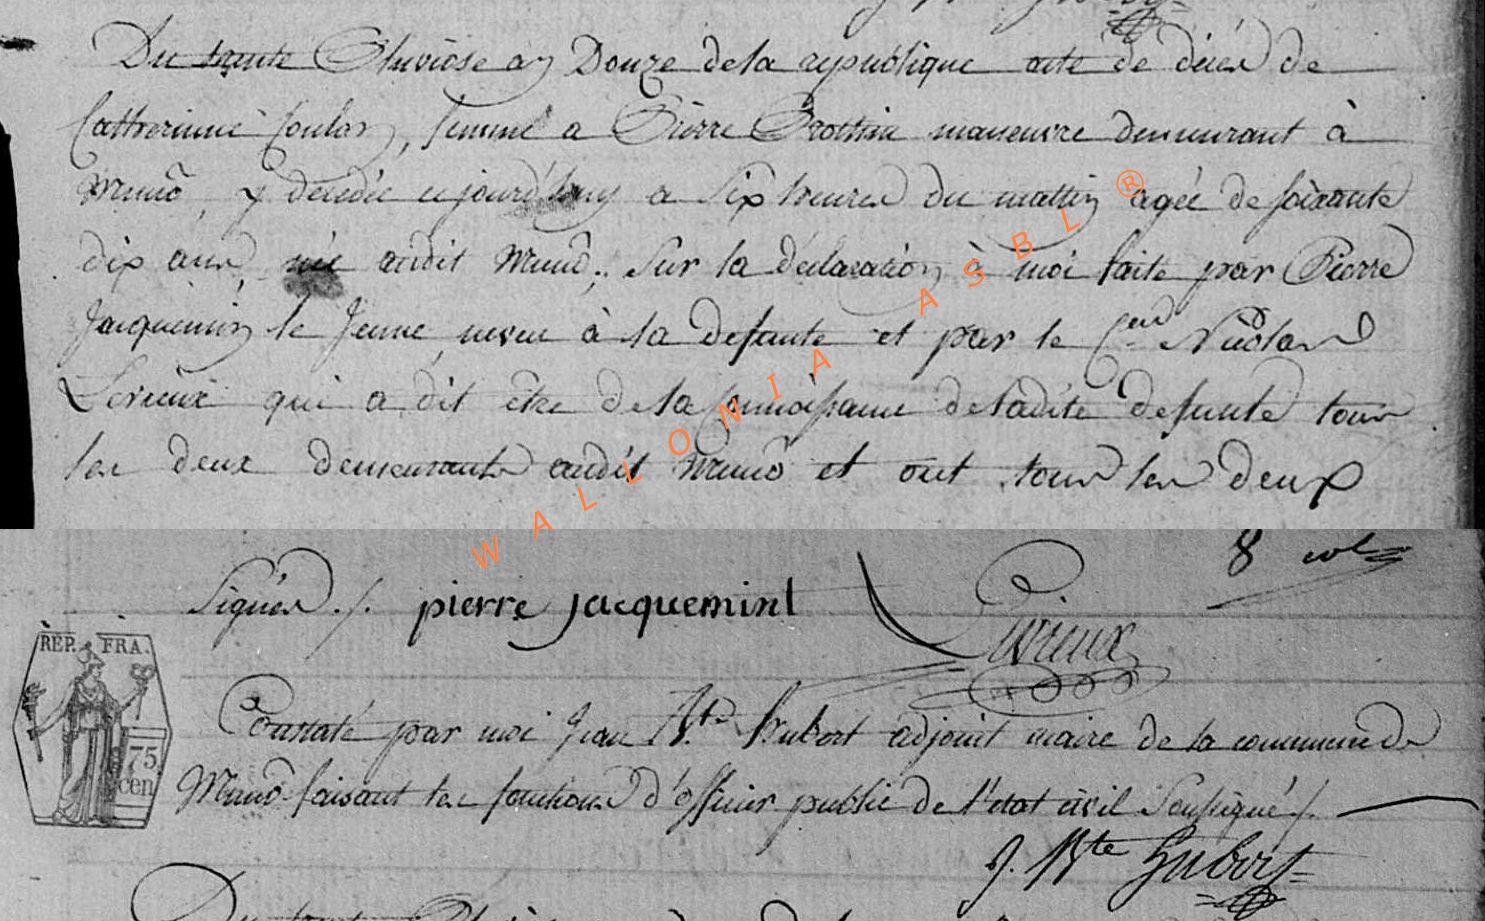 Du trante Pluviose an Douze de la republique acte de décés de
Catherinne Coulon, femme a Pierre Brottin maneuvre demeurant à
Muno, y decedée cejourd'huy a six heures du mattin agée de soixante
dix ans née audit Muno, sur la déclaration à moi faite par Pierre
Jacquemin le Jeune neveu à la defunte et par le Cen Nicolas
Lerieux qui a dit être de la connoissance de ladite defunte tous
les deux demeurants audit Muno et ont tous les deux
8 vol
Signés ./. pierre jacqueminl Lerieux
Constaté par moi Jean Bte Hubert adjoint maire de la commune de
Muno faisant les fonctions d'officier public de l'etat civil soussigné ./.
J. Bte Hubert
REP. FRA.
75 cen
WALLONIA ASBL ®